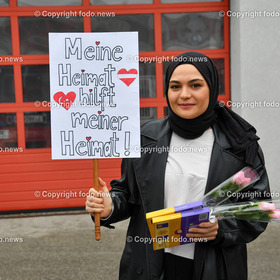 Copyright © fodo.news Copyright © fodo.news
Meine
Heimat
hilft
meiner
Heimat!
Copyright © fodo.news Copyright © fodo.news
Copyright © fodo.news Copyright © fodo.news
Copyright © fodo.news Copyright © fodo.news
Copyright © fodo.news Copyright © fodo.news
Copyright © fodo.news Copyright © fodo.news